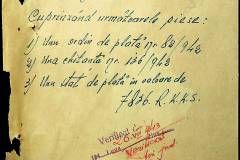 Cuprinzând următoarele piese:
1) Un ordin de plată nr. 82/943
2) Una chitanță nr. 136/943
3) Un stat de plată în valoare de
7836. R.K.K.S.
Verificat